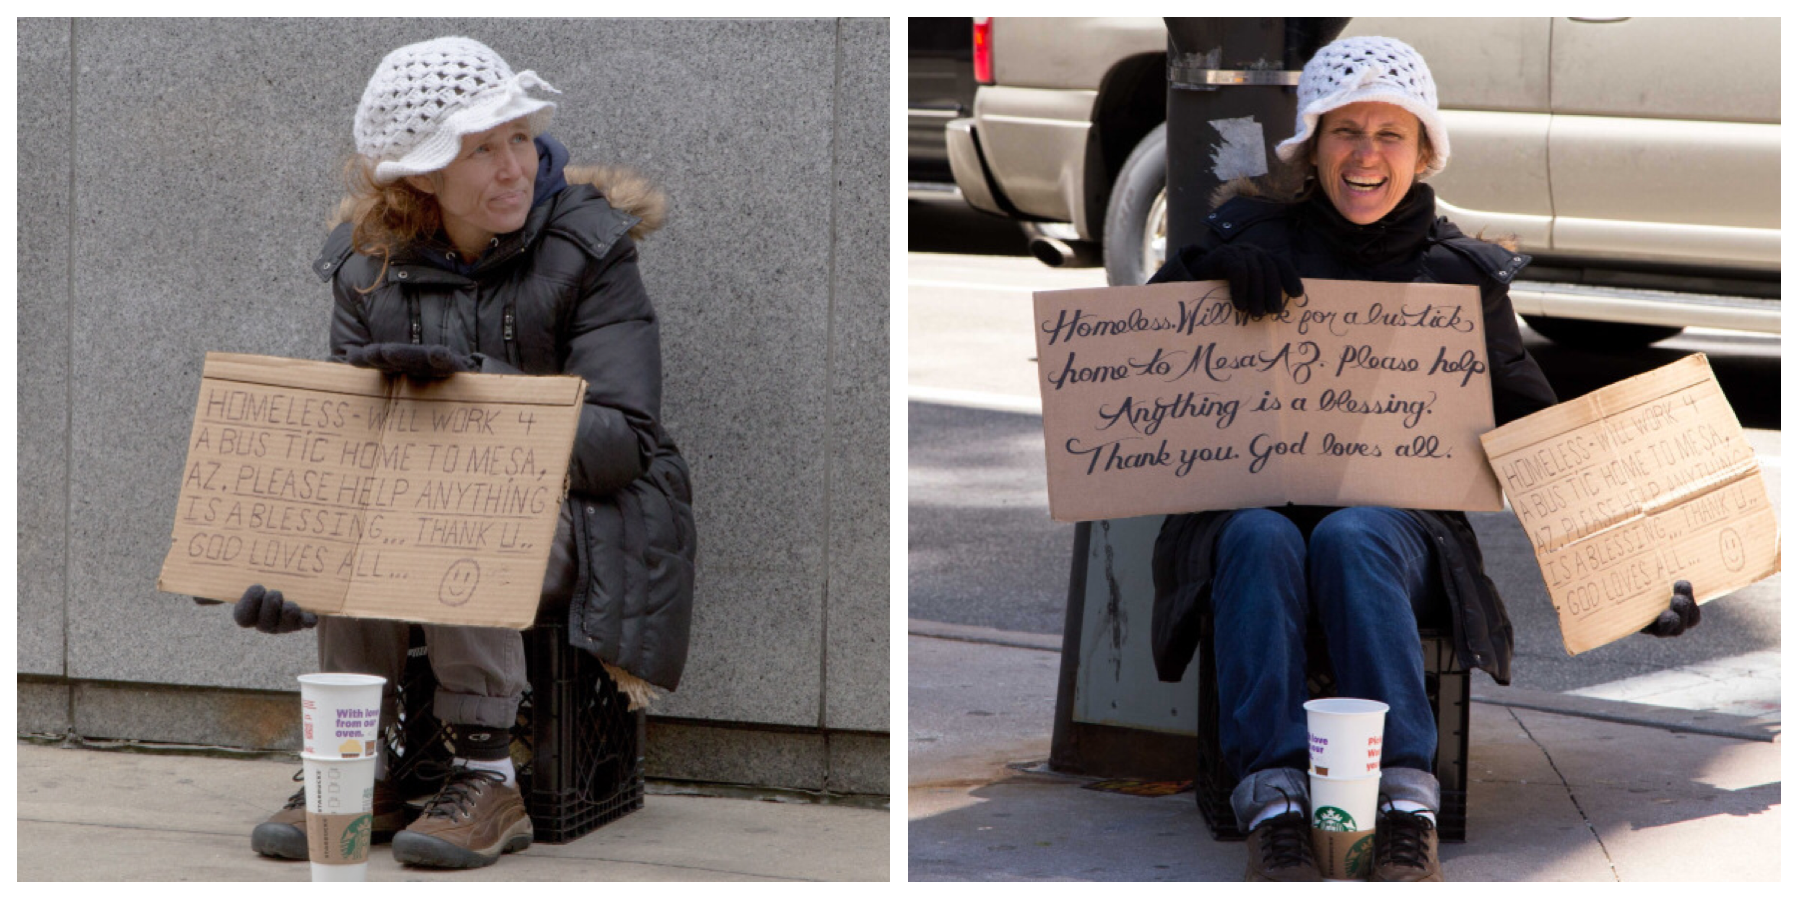 HOMELESS-WILL WORK 4
A BUS TIC HOME TO MESA,
AZ. PLEASE HELP ANYTHING
IS A BLESSING... THANK U..
GOD LOVES ALL...
With love
from our
oven.
STARBUCKS
Homeless. Will work for a bus tick
home to Mesa AZ. Please help
Anything is a blessing?
Thank you. God loves all.
HOMELESS-WILL WORK 4
A BUS TIC HOME TO MESA,
AZ. PLEASE HELP ANYTHING
IS A BLESSING... THANK U..
GOD LOVES ALL...
love
our